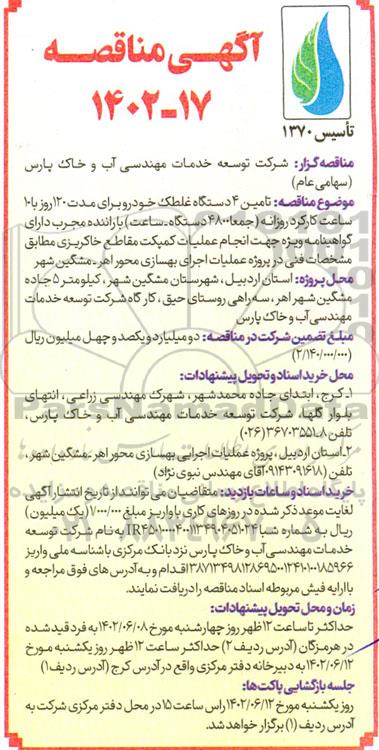 آگهی مناقصه
۱۷-۱۴۰۲
تأسیس ۱۳۷۰
مناقصه گزار: شرکت توسعه خدمات مهندسی آب و خاک پارس
(سهامی عام)
موضوع مناقصه: تامین ۴ دستگاه غلطک خودرو برای مدت ۱۲۰ روز با ۱۰
ساعت کارکرد روزانه (جمعا ۴۸۰۰ دستگاه-ساعت) با راننده مجرب دارای
گواهینامه ویژه جهت انجام عملیات کمپکت مقاطع خاکریزی مطابق
مشخصات فنی در پروژه عملیات اجرای بهسازی محور اهر-مشگین شهر
محل پروژه: استان اردبیل، شهرستان مشگین شهر، کیلومتر ۵ جاده
مشگین شهر اهر، سه راهی روستای حیق، کارگاه شرکت توسعه خدمات
مهندسی آب و خاک پارس
مبلغ تضمین شرکت در مناقصه: دو میلیارد و یکصد و چهل میلیون ریال
(۲/۱۴۰/۰۰۰/۰۰۰)
محل خرید اسناد و تحویل پیشنهادات:
۱-کرج، ابتدای جاده محمدشهر، شهرک مهندسی زراعی، انتهای
بلوار گلها، شرکت توسعه خدمات مهندسی آب و خاک پارس،
تلفن ۸-۳۶۷۰۳۵۵۱ (۰۲۶)
۲-استان اردبیل، پروژه عملیات اجرایی بهسازی محور اهر-مشگین شهر،
تلفن (۰۹۱۴۳۰۹۱۶۱۸ آقای مهندس نبوی نژاد)
خرید اسناد و ساعات بازدید: متقاضیان می توانند از تاریخ انتشار آگهی
لغایت موعد ذکر شده در روزهای کاری با واریز مبلغ ۱/۰۰۰/۰۰۰ (یک میلیون)
ریال به شماره شبا به نام شرکت توسعه
خدمات مهندسی آب و خاک پارس نزد بانک مرکزی با شناسه ملی واریز
اقدام و به آدرس های فوق مراجعه و
با ارایه فیش مربوطه اسناد مناقصه را دریافت نمایند.
زمان و محل تحویل پیشنهادات:
حداکثر تا ساعت ۱۲ ظهر روز چهارشنبه مورخ ۱۴۰۲/۰۶/۰۸ به فرد قید شده
در هرمزگان (آدرس ردیف ۲) حداکثر ساعت ۱۲ ظهر روز یکشنبه مورخ
۱۴۰۲/۰۶/۱۲ به دبیرخانه دفتر مرکزی واقع در آدرس کرج (آدرس ردیف ۱)
جلسه بازگشایی پاکت‌ها:
روز یکشنبه مورخ ۱۴۰۲/۰۶/۱۲ راس ساعت ۱۵ در محل دفتر مرکزی شرکت به
آدرس ردیف (۱) برگزار خواهد شد.